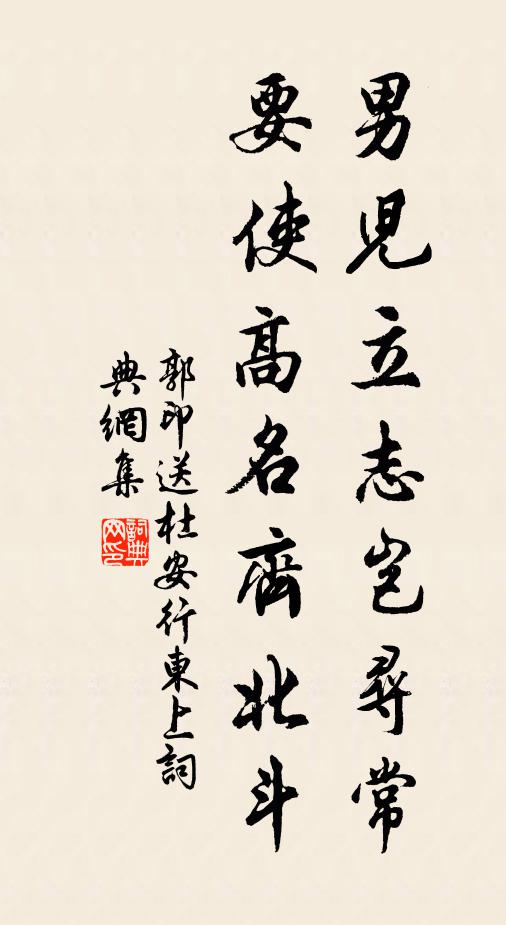 男兒立志豈尋常
要使高名齊北斗
郭印送杜安行東上詞
典網集
詞典網印